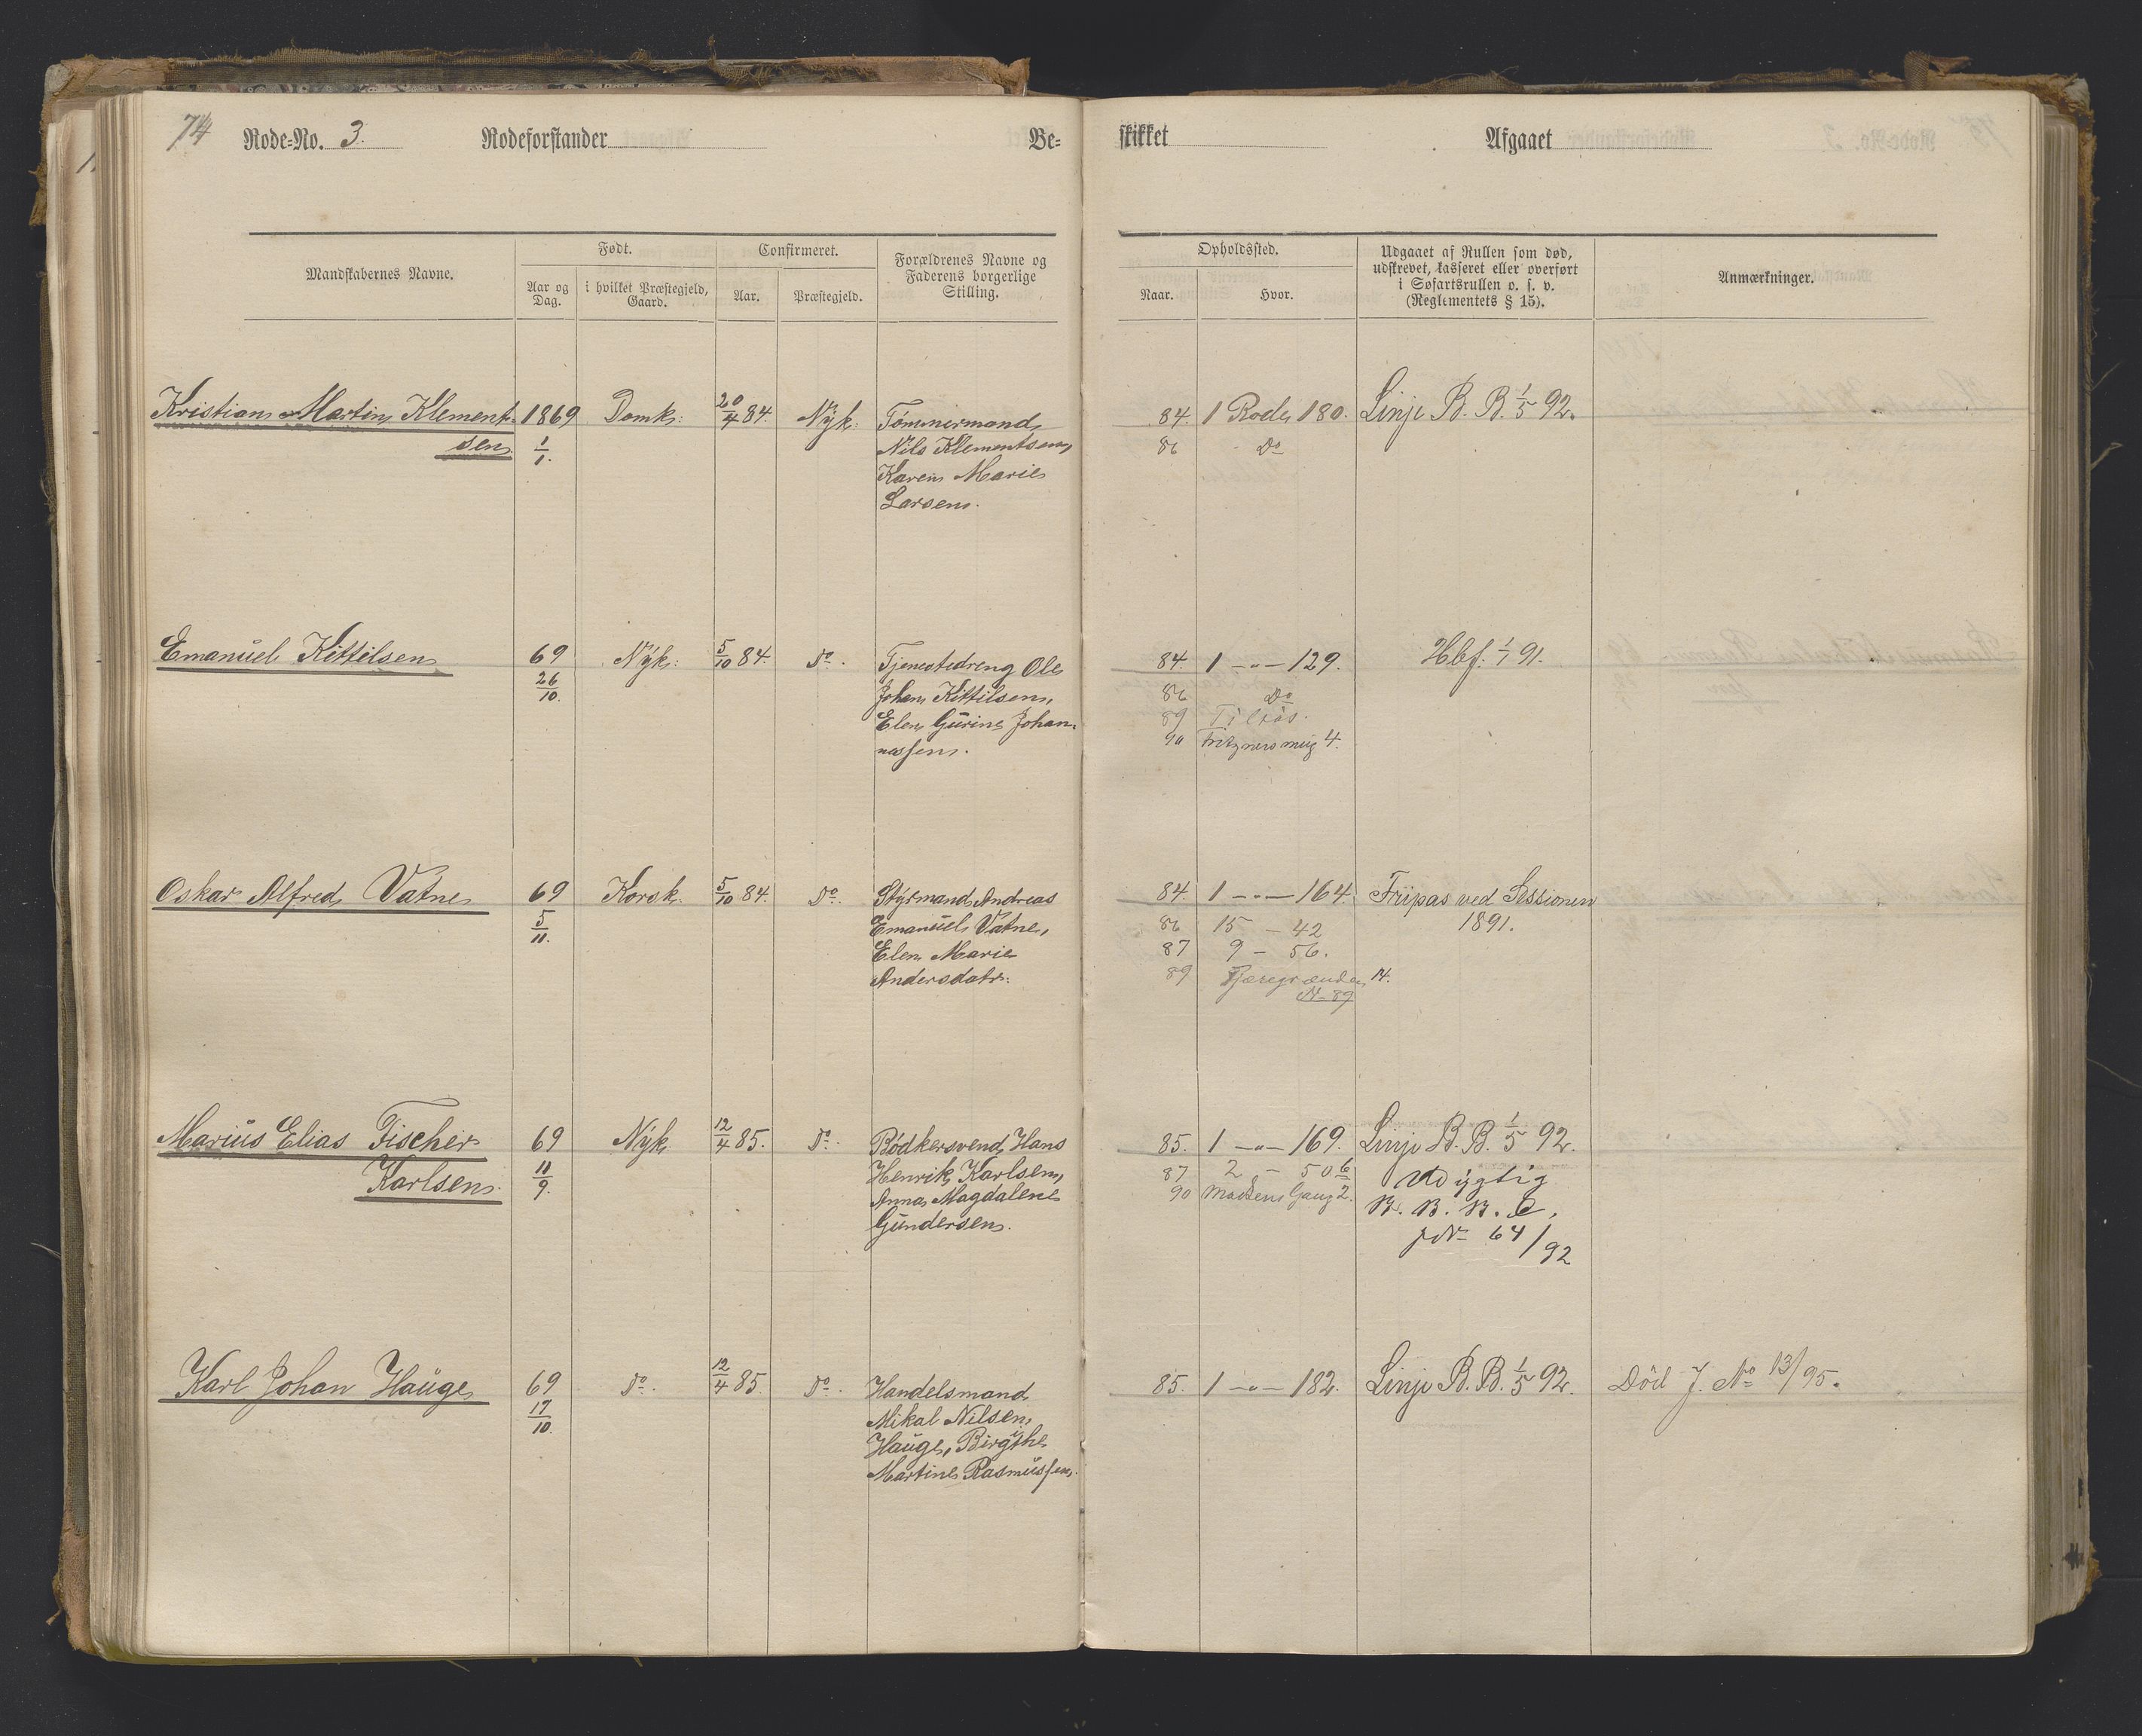 74 Rode-No. 3. Rodeforstander Be- skikket Afgaaet
Mandskabernes Navne.
Født.
Aar og Dag.
i hvilket Præstegjeld, Gaard.
Confirmeret.
Aar.
Præstegjeld.
Forældrenes Navne og
Faderens borgerlige
Stilling.
Opholdssted.
Naar.
Hvor.
Udgaaet af Rullen som død,
udskrevet, kasseret eller overført
i Søfartsrullen o. s. v.
(Reglementets § 15).
Anmærkninger.
Kristian Martin Klement- 1869 Domk: 20/4 84. Nyk: Tømmermand
sen 1/1. Nils Klementsen,
Karen Marie
Larsen.
84. 1 Rode 180. Linje B. B. 1/5 92.
86 Do
Emanuel Kittilsen 69 Nyk: 5/10 84. Do. Tjenestedreng Ole
26/10. Johan Kittilsen,
Elen Gurine Johan-
nessen.
84. 1 -"- 129. Hbf. 1/1 91.
86 Do
89
90 4.
Oskar Alfred Vatne 69 Korsk. 5/10 84. Do. Styrmand Andreas
5/11. Emanuel Vatne,
Elen Marie
Andersdatr:
84. 1 -"- 164. Friipas ved Sessionen
86 15 - 42 1891.
87 9 - 56.
89 14.
Marius Elias Fischer 69 Nyk. 12/4 85. Do. Bødkersvend Hans
Karlsen 11/9. Henrik Karlsen,
Anna Magdalene
Gundersen.
85. 1 -"- 169. Linje B. B. 1/5 92.
87 2 - 50 b Udygtig
90 Madsens Gang 2. B. B. B. C,
JNo 64/92
Karl Johan Hauge 69 Do. 12/4 85. Do. Handelsmand
17/10. Mikal Nilsen
Hauge, Birgithe
Martine Rasmussen.
85. 1 -"- 182. Linje B. B. 1/5 92. Död J. No 13/95.